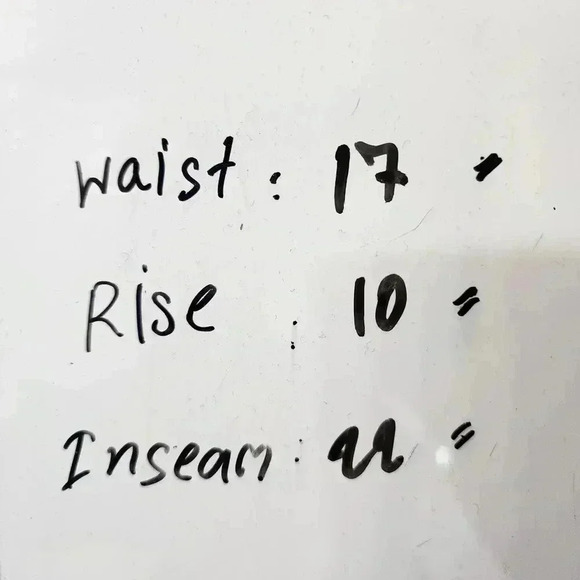 Waist : 17 "
Rise : 10 "
Inseam : "